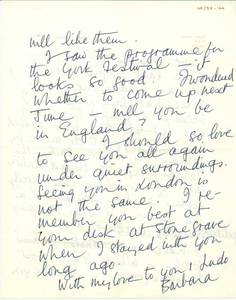 will like them.
I saw the programme for
the York Festival – it
looks so good I wondered
whether to come up next
June – will you be
in England?
I should so love
to see you all again
under quiet surroundings.
Seeing you in London is
not the same. I re-
member you best at
your desk at Stonegrave
when I stayed with you
long ago.
With my love to you & Ludo
Barbara